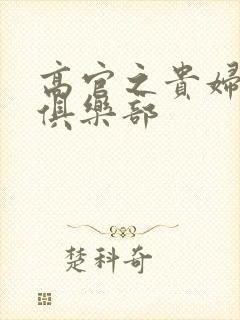 高官之貴婦
俱樂部
楚科奇